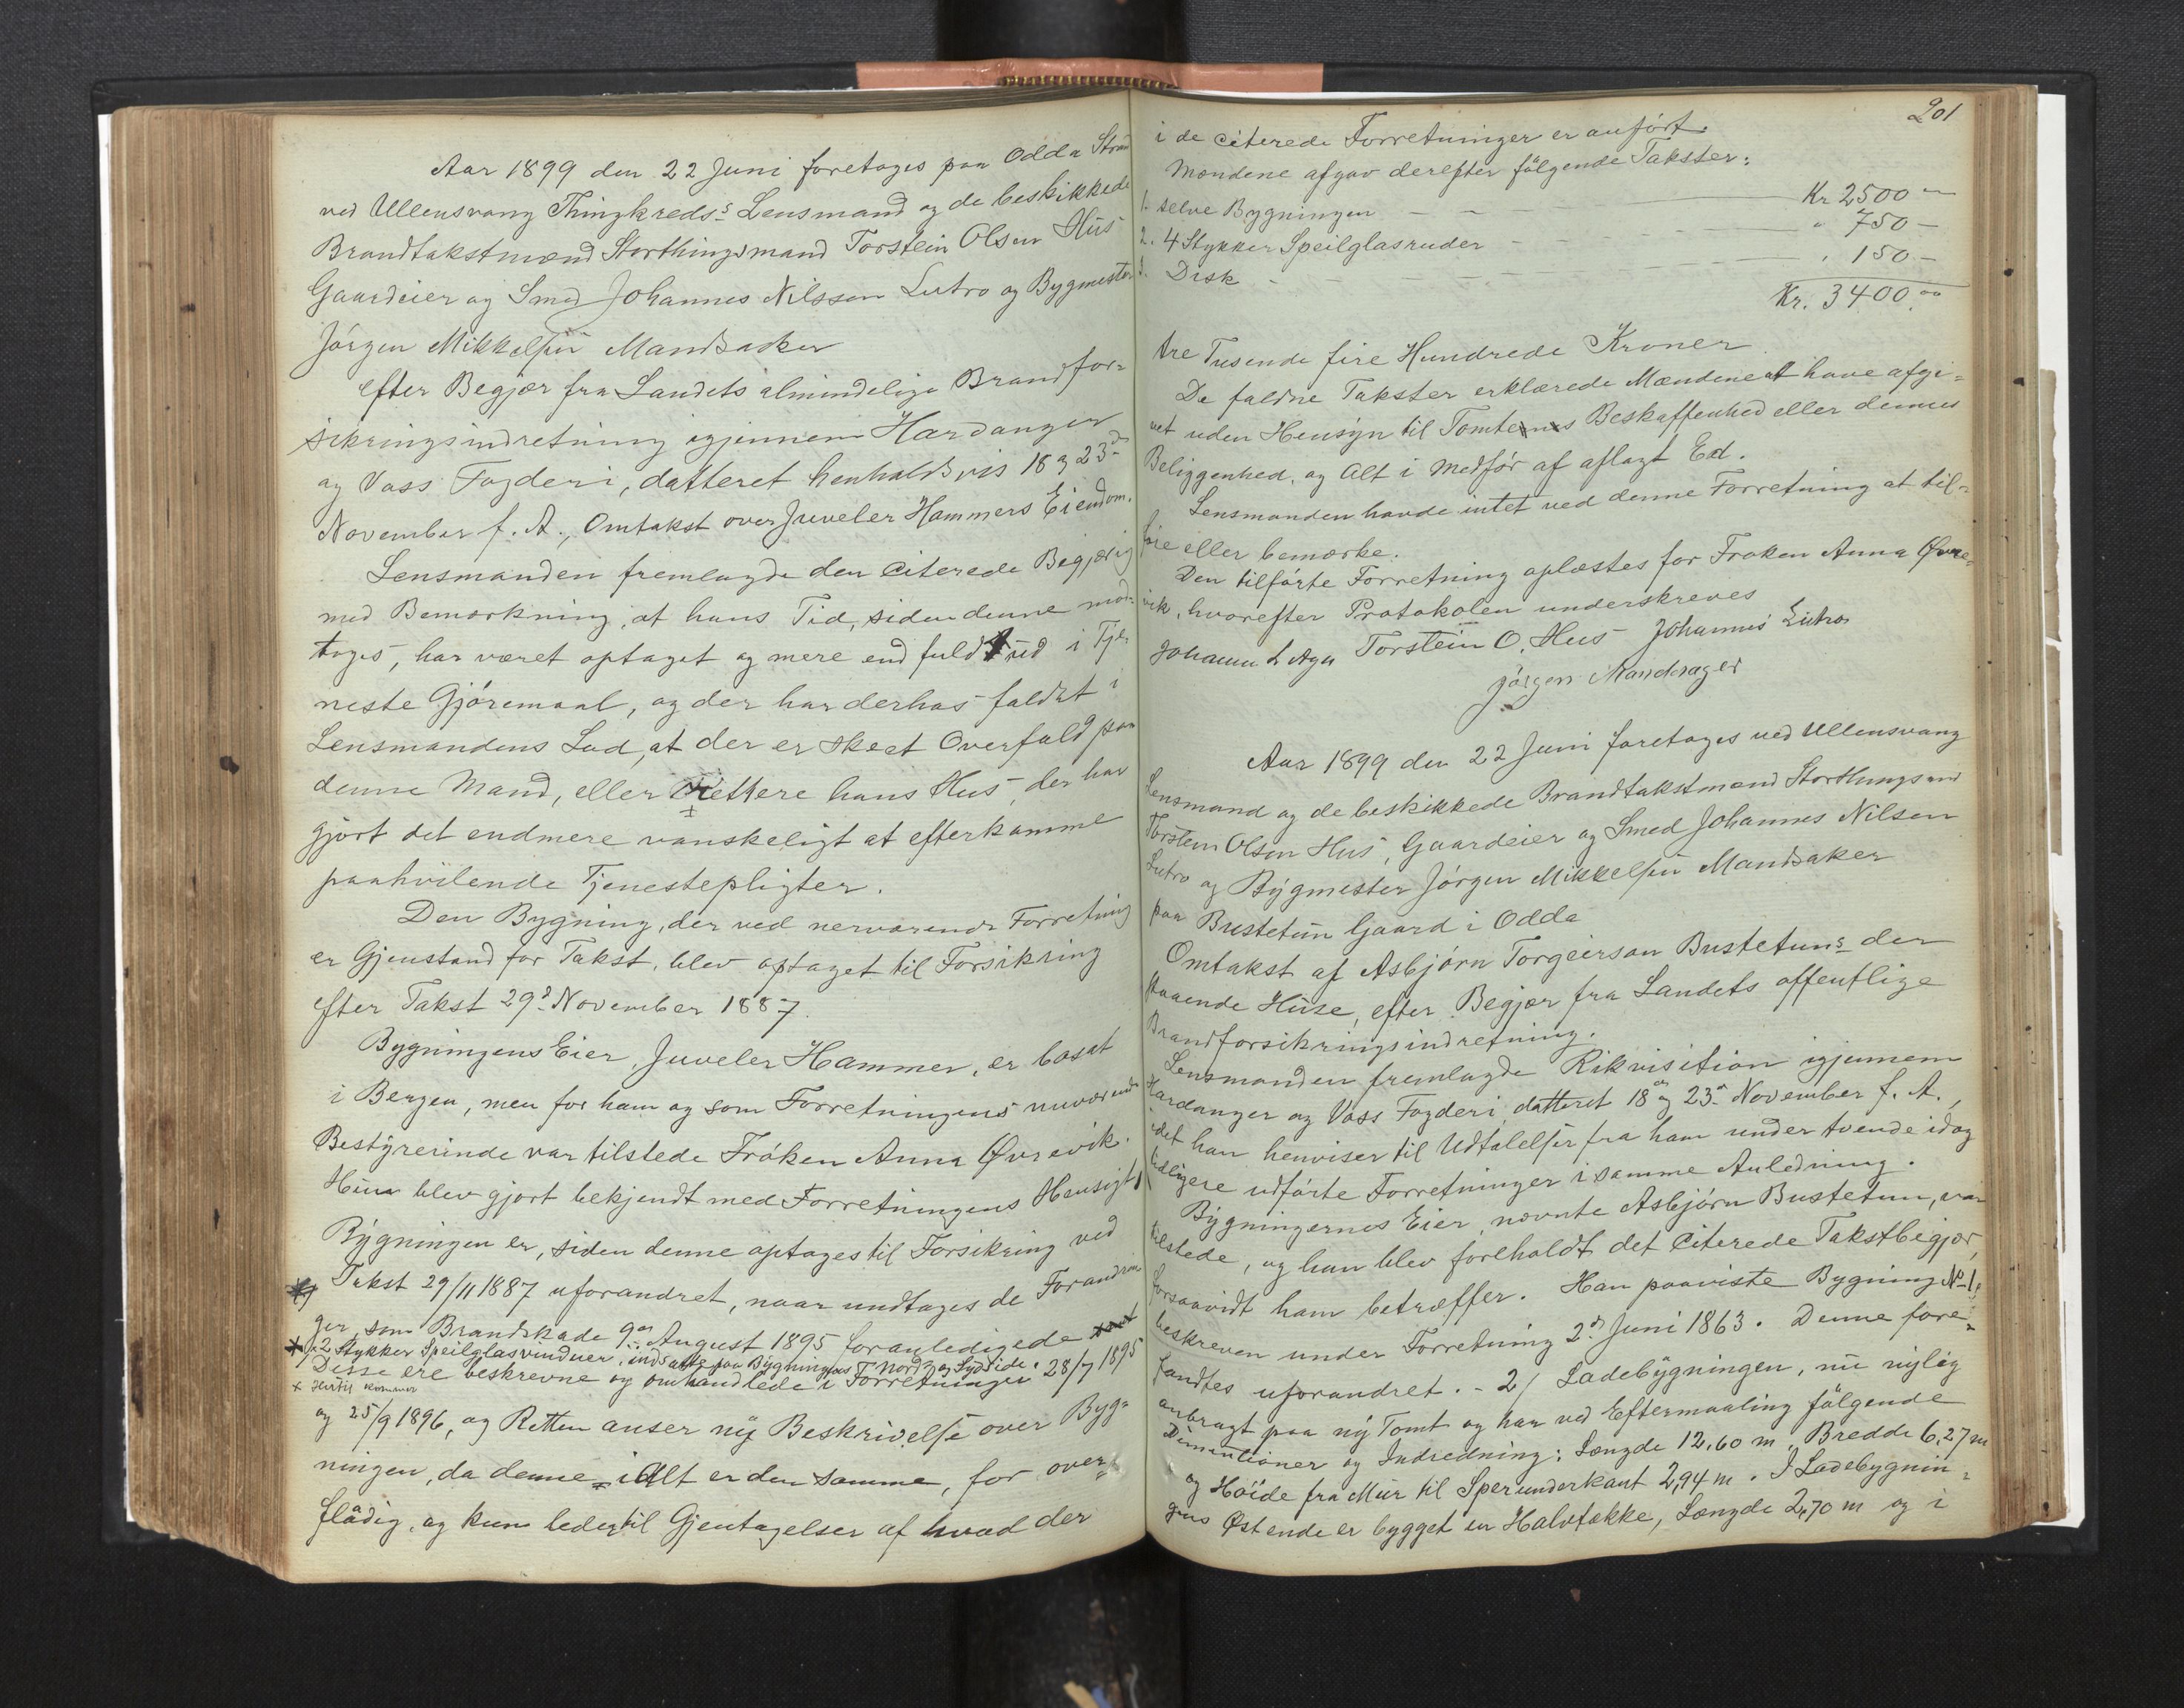 Aar 1899 den 22 Juni foretoges paa Odda Strand
ved Ullensvang Thingkreds's Lensmand og de beskikkede
Brandtakstmænd Storthingsmand Torstein Olsen Hus
Gaardeier og Smed Johannes Nilssen Lutro og Bygmester
Jörgen Mikkelsen Mandsaker
efter Begjær fra Landets almindelige Brandfor=
sikringsindretning igjennem Hardanger
og Voss Fogderi, datteret henholdsvis 18 og 23de
November f. A., Omtakst over Juveler Hammers Eiendom.
Lensmanden fremlagde den citerede Begjæring
med Bemærkning, at hans Tid, siden denne mod=
toges, har været optaget og mere end fuldt ud i Tje
neste Gjöremaal, og der har derhos faldt i
Lensmandens Lod, at der er skeet Overfald paa
denne Mand, eller rettere hans Hus, der har
gjort det endmere vanskeligt at efterkomme
paahvilende Tjenestepligter.
Den Bygning, der ved nerværende Forretning
er Gjenstand for Takst, blev optaget til Forsikring
efter Takst 29d November 1887.
Bygningens Eier, Juveler Hammer, er bosat
i Bergen, men for ham og som Forretningens nuværende
Bestyrerinde var tilstede Fröken Anna Øvrevik.
Hun blev gjort bekjendt med Forretningens Hensigt
Bygningen er, siden denne optoges til Forsikring ved
Takst 29/11 1887 uforandret, naar undtages de Forandrin
ger, som Brandskade 9de August 1895 foranledigede
2 Stykker Speilglasvinduer, indsatte paa Bygningens Nord og Sydside.
Disse ere beskrevne og omhandlede i Forretninger 28/7 1895
× Hertil kommer
og 25/9 1896, og Retten anser ny Beskrivelse over Byg=
ningen, da denne i Alt er den samme, for over=
flödig, og kun leder til Gjentagelser af hvad der
201
i de citerede Forretninger er anfört.
Mændene afgav derefter fölgende Takster:
1. selve Bygningen - - Kr 2500 -
2. 4 Stykker Speilglasruder - - " 750 -
3. Disk - - " 150 -
Kr. 3400,00
tre Tusende fire Hundrede Kroner
De faldne Takster erklærede Mændene at have afgi=
vet uden Hensyn til Tomtens Beskaffenhed eller dennes
Beliggenhed, og Alt i Medför af aflagt Ed.
Lensmanden havde intet ved denne Forretning at til=
föie eller bemærke.
Den tilförte Forretning oplæstes for Fröken Anna Øvre=
vik, hvorefter Protokolen underskreves
Johann L Aga Torstein O. Hus Johannes Lutro
Jörgen Mandsager
Aar 1899 den 22 Juni foretoges ved Ullensvang
Lensmand og de beskikkede Brandtakstmænd Storthingsmd
Torstein Olsen Hus, Gaardeier og Smed Johannes Nilsen
Lutro og Bygmester Jörgen Mikkelsen Mandsaker
paa Bustetun Gaard i Odda
Omtakst af Asbjörn Torgeirson Bustetuns der
staaende Huse, efter Begjær fra Landets offentlige
Brandforsikringsindretning.
Lensmanden fremlagde Rikvisition igjennem
Hardanger og Voss Fogderi, datteret 18 og 23de November f. A.,
idet han henviser til Udtalelser fra ham under tvende idag
tidligere udförte Forretninger i samme Anledning.
Bygningernes Eier, nævnte Asbjörn Bustetun, var
tilstede, og han blev foreholdt det citerede Takstbegjær,
forsaavidt ham betræffer. Han paaviste Bygning No 1,
beskreven under Forretning 2d Juni 1863. Denne fore=
fandtes uforandret. - 2/ Ladebygningen, nu nylig
anbragt paa ny Tomt og har ved Eftermaaling fölgende
Dimentioner og Indredning: Længde 12,60 m, Bredde 6,27 m
og Höide fra Mur til Sperunderkant 2,94 m. I Ladebygnin=
gens Østende er bygget en Halvtække, Længde 2,70 m og i